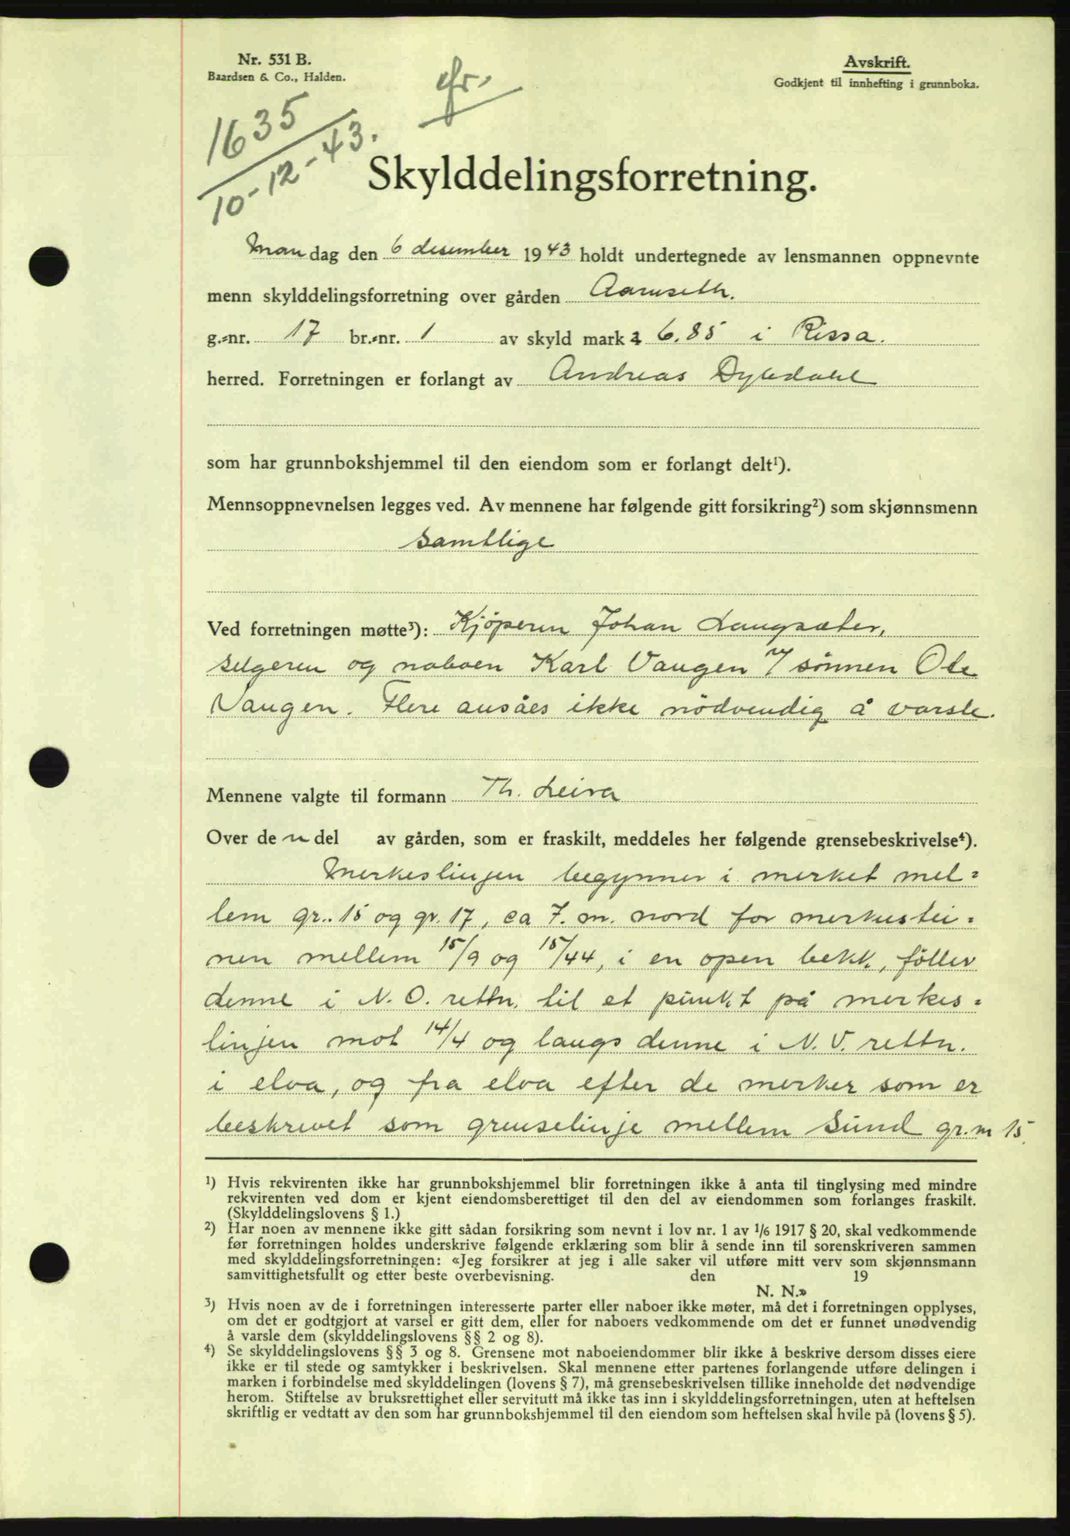 Nr. 531 B.
Baardsen & Co., Halden.
Avskrift.
Godkjent til innhefting i grunnboka.
1635
10-12-43.
Skylddelingsforretning.
Mandag den 6 desember 1943 holdt undertegnede av lensmannen oppnevnte
menn skylddelingsforretning over gården Aamseth.
g.-nr. 17 br.-nr. 1 av skyld mark 6,85 i Rissa.
herred. Forretningen er forlangt av Andreas Dybdahl
som har grunnbokshjemmel til den eiendom som er forlangt delt¹).
Mennsoppnevnelsen legges ved. Av mennene har følgende gitt forsikring²) som skjønnsmenn
samtlige
Ved forretningen møtte³): Kjøperen Johan Langsæter,
selgeren og naboen Karl Vaugen v/ sønnen Ole
Vaugen. Flere ansåes ikke nödvendig å varsle.
Mennene valgte til formann Th. Leira
Over de n del av gården, som er fraskilt, meddeles her følgende grensebeskrivelse⁴).
Merkeslinjen begynner i merket mel=
lem gr. 15 og gr. 17, ca 7. m. nord for merkestei=
nen mellem 15/9 og 15/44, i en open bekk, föller
denne i N. O. rettn. til et punkt på merkes=
linjen mot 14/4 og langs denne i N. V. rettn.
i elva, og fra elva efter de merker som er
beskrevet som grenselinje mellem Sund gr.nr 15.
¹) Hvis rekvirenten ikke har grunnbokshjemmel blir forretningen ikke å anta til tinglysing med mindre
rekvirenten ved dom er kjent eiendomsberettiget til den del av eiendommen som forlanges fraskilt.
(Skylddelingslovens § 1.)
²) Har noen av mennene ikke gitt sådan forsikring som nevnt i lov nr. 1 av 1/6 1917 § 20, skal vedkommende
før forretningen holdes underskrive følgende erklæring som blir å sende inn til sorenskriveren sammen
med skylddelingsforretningen: «Jeg forsikrer at jeg i alle saker vil utføre mitt verv som skjønnsmann
samvittighetsfullt og etter beste overbevisning. den 19
N. N.»
³) Hvis noen av de i forretningen interesserte parter eller naboer ikke møter, må det i forretningen opplyses,
om det er godtgjort at varsel er gitt dem, eller for naboers vedkommende om det er funnet unødvendig
å varsle dem (skylddelingslovens §§ 2 og 8).
⁴) Se skylddelingslovens §§ 3 og 8. Grensene mot naboeiendommer blir ikke å beskrive dersom disses eiere
ikke er til stede og samtykker i beskrivelsen. Skal mennene etter partenes forlangende utføre delingen i
marken i forbindelse med skylddelingen (lovens § 7), må grensebeskrivelsen tillike inneholde det nødvendige
herom. Stiftelse av bruksrettighet eller servitutt må ikke tas inn i skylddelingsforretningen, uten at heftelsen
skriftlig er vedtatt av den som har grunnbokshjemmel til den eiendom som heftelsen skal hvile på (lovens § 5).